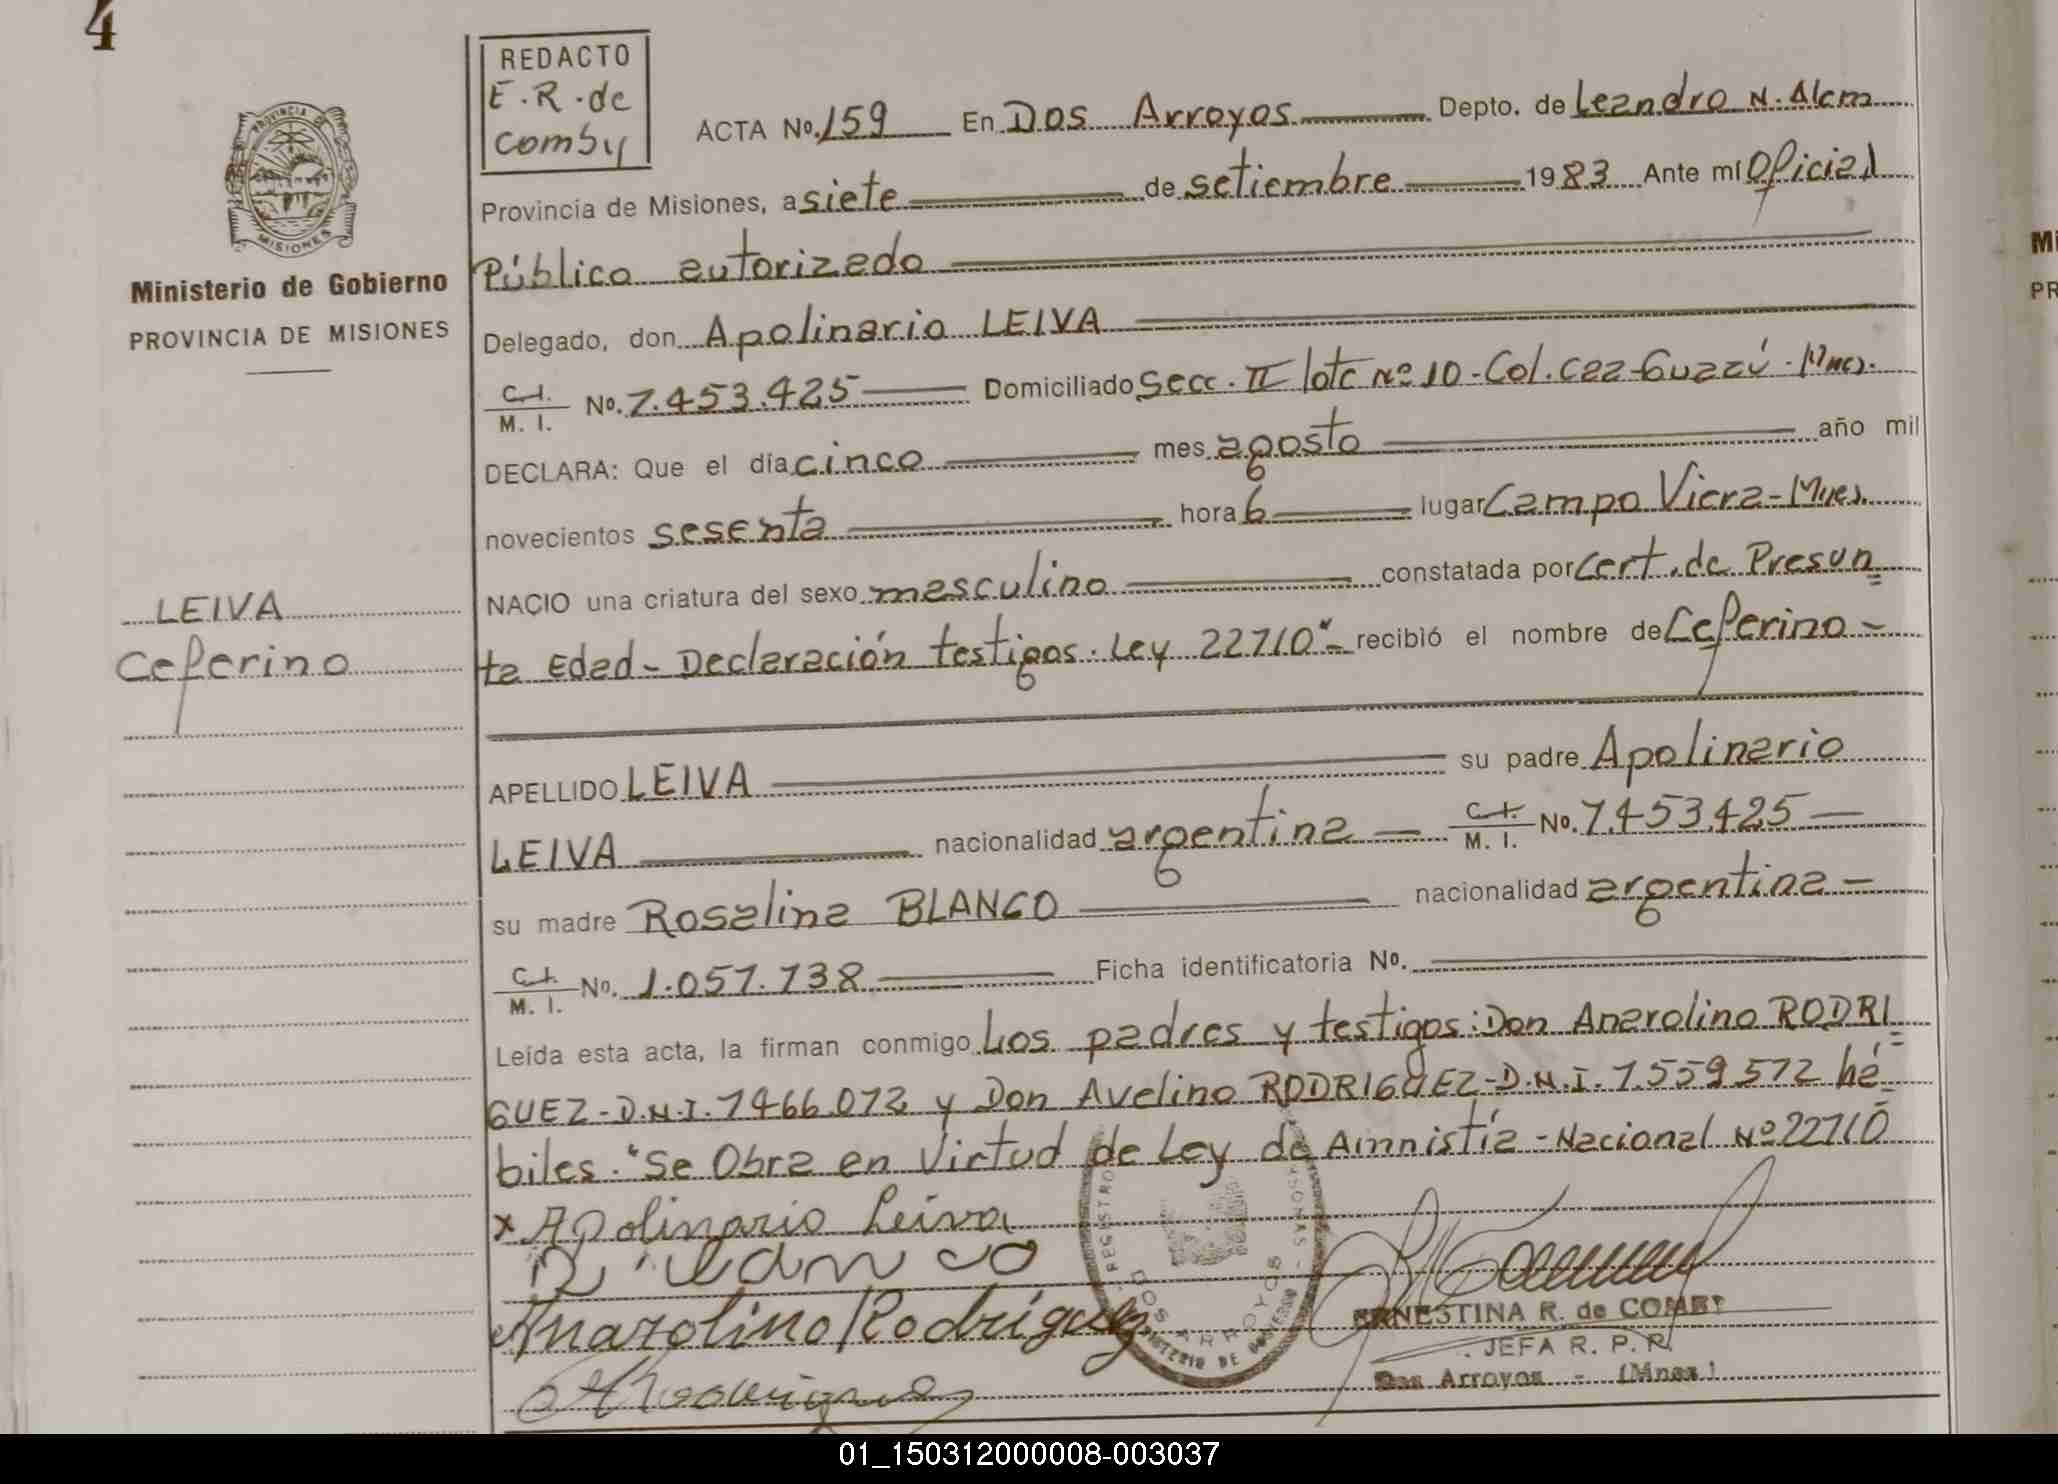 4
REDACTO
E.R. de
Comby
PROVINCIA DE
MISIONES
Ministerio de Gobierno
PROVINCIA DE MISIONES
ACTA No. 159 En Dos Arroyos Depto. de Leandro N. Alem
Provincia de Misiones, a siete de setiembre 1983 Ante mí Oficial
Público autorizado
Delegado, don Apolinario LEIVA
C.I. / M. I. No. 7.453.425 Domiciliado Secc. II lote Nº 10 - Col. Caa-Guazú - Mnes.
DECLARA: Que el día cinco mes agosto año mil
novecientos sesenta hora 6 lugar Campo Viera - Mnes.
NACIO una criatura del sexo masculino constatada por Cert. de Presun
ta Edad - Declaración testigos. Ley 22710" - recibió el nombre de Ceferino -
LEIVA
Ceferino
APELLIDO LEIVA su padre Apolinario
LEIVA nacionalidad argentina C.I. / M. I. No. 7.453.425
su madre Rosalina BLANCO nacionalidad argentina
C.I. / M. I. No. 1.051.738 Ficha identificatoria No.
Leída esta acta, la firman conmigo Los padres y testigos: Don Anarolino RODRI
GUEZ - D.N.I. 7466.072 y Don Avelino RODRIGUEZ - D.N.I. 7.559.572 há
biles. "Se Obra en Virtud de Ley de Amnistía - Nacional Nº 22710
x Apolinario Leiva
R. Blanco
Anarolino Rodriguez
REGISTRO
DOS ARROYOS
MINISTERIO DE GOBIERNO
ERNESTINA R. de COMBY
JEFA R. P. R.
Dos Arroyos - (Mnes.)
Mi
PR
01_150312000008-003037